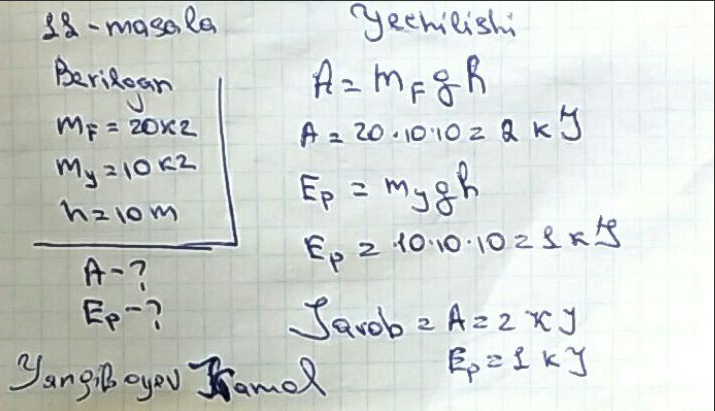 11-masala
Berilgan
mF = 20 кг
my = 10 кг
h = 10 m
A - ?
Ep - ?
Yechilishi
A = mFgh
A = 20·10·10 = 2 кJ
Ep = mygh
Ep = 10·10·10 = 1 кJ
Javob = A = 2 кJ
Ep = 1 кJ
Yangiboyev Kamol